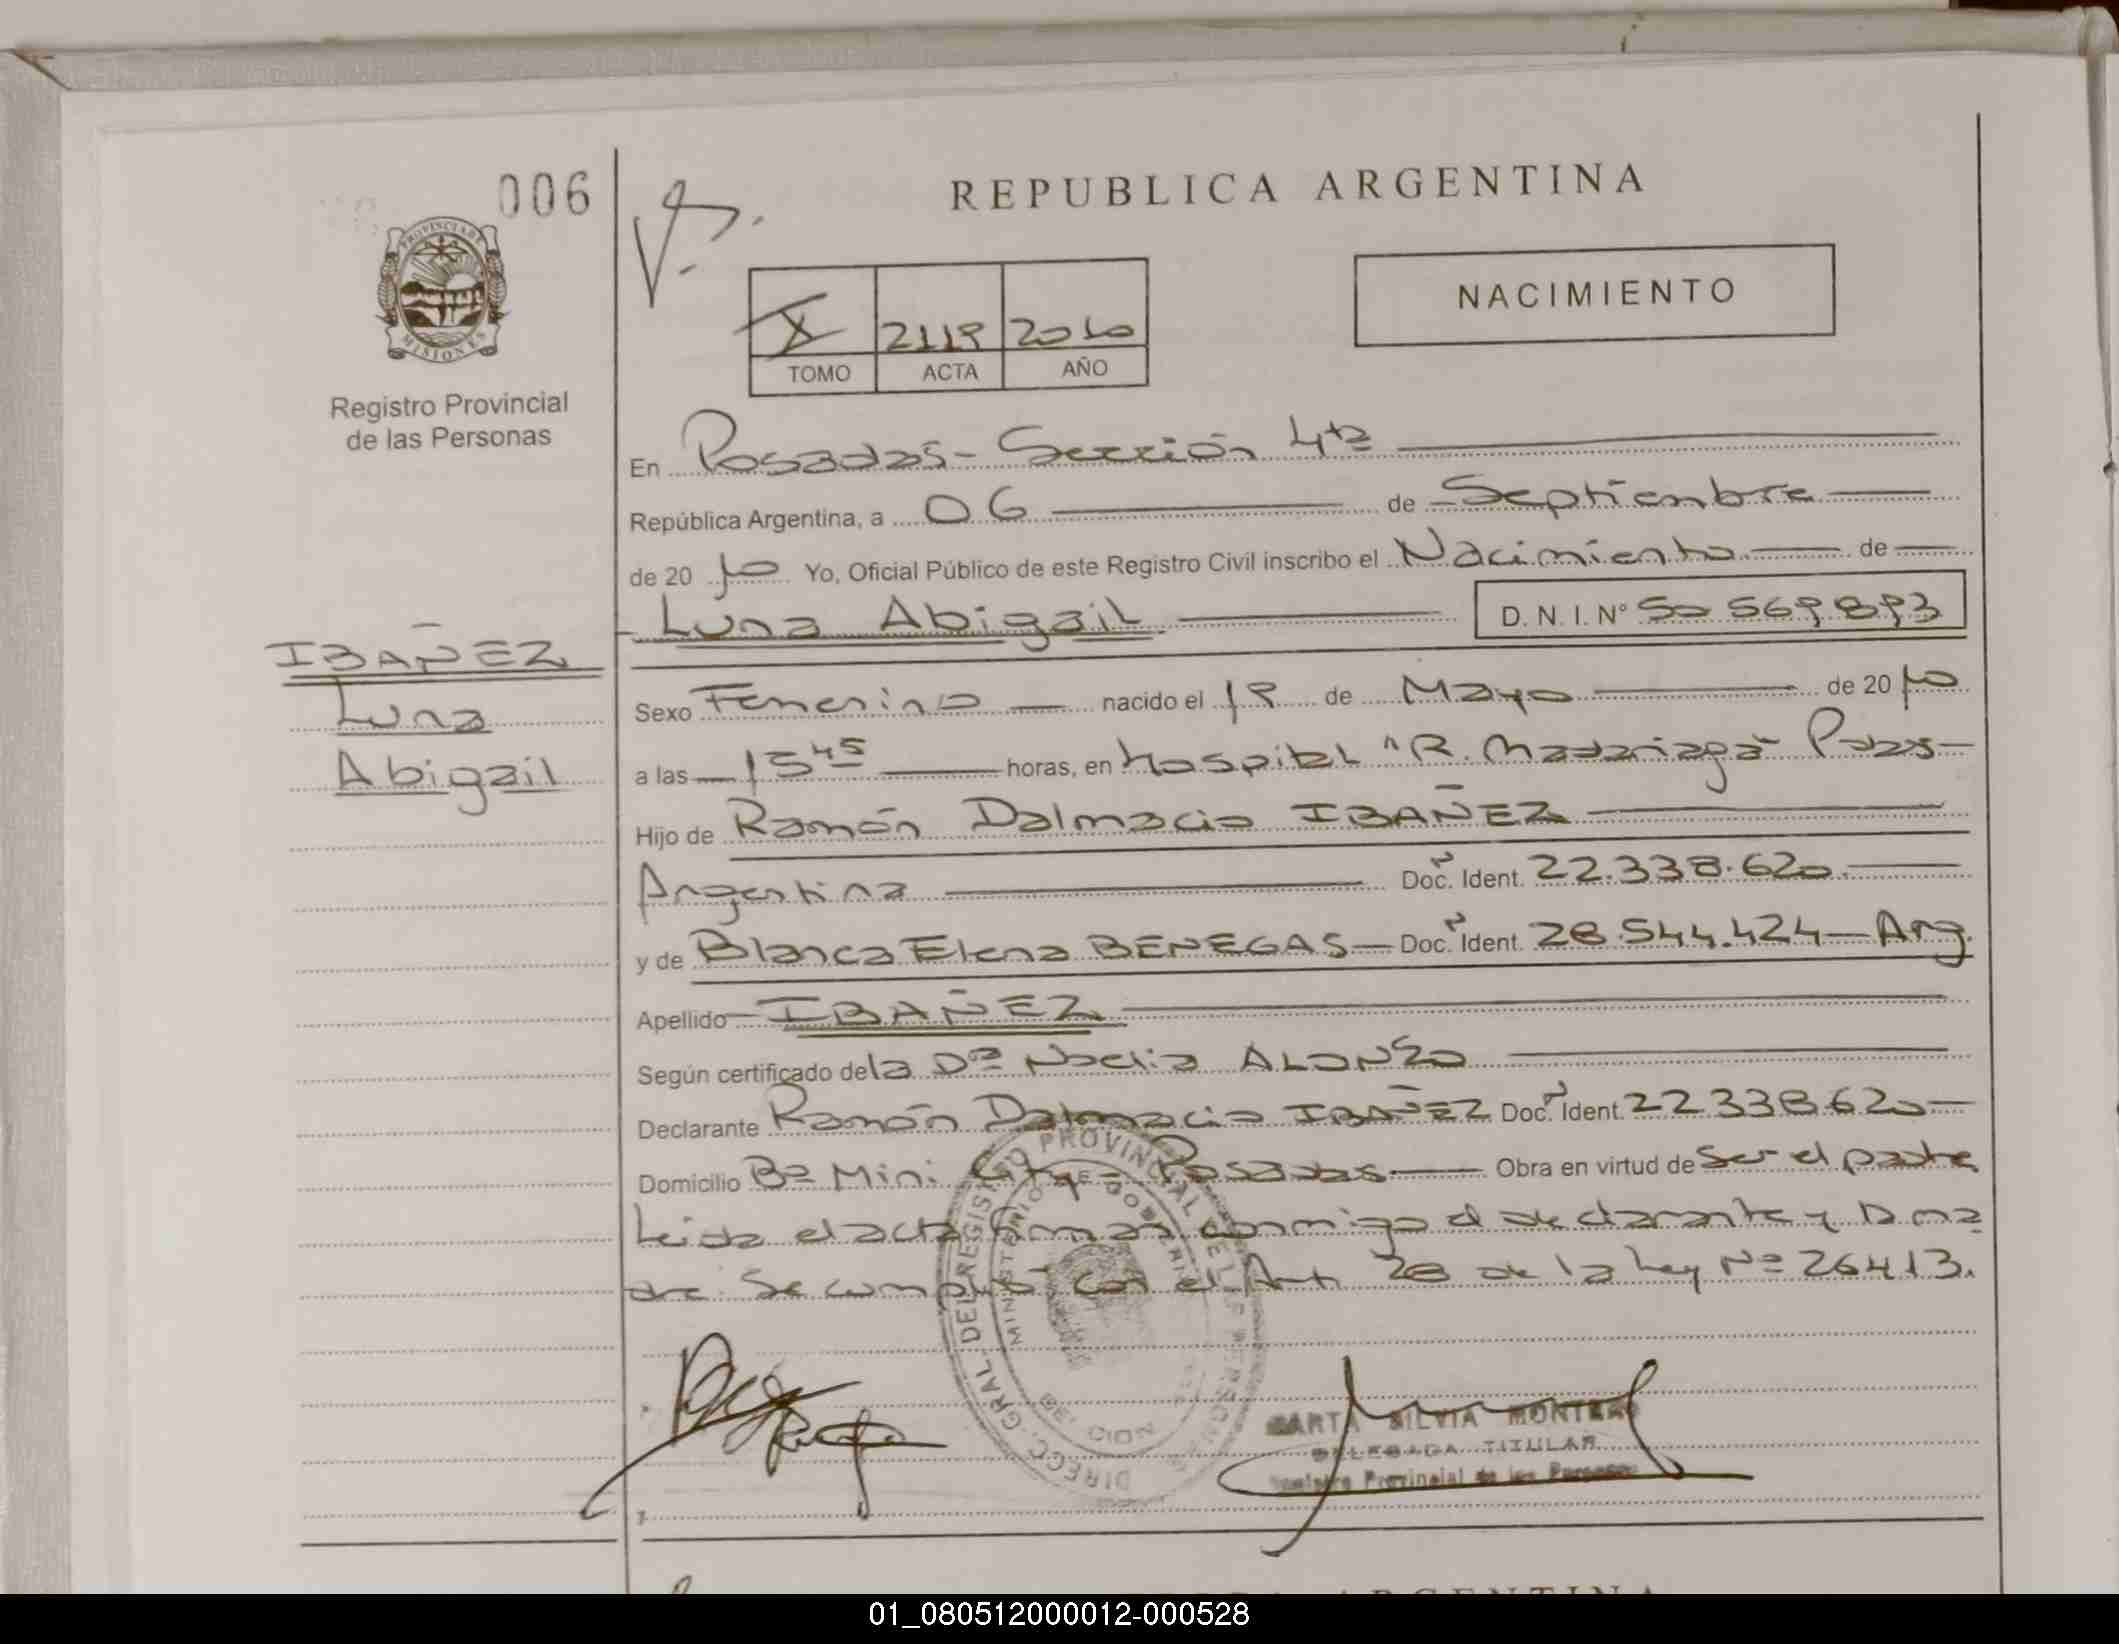 006
REPUBLICA ARGENTINA
NACIMIENTO
PROVINCIA DE
MISIONES
X 2119 2010
TOMO ACTA AÑO
Registro Provincial
de las Personas
En Posadas - Sección 4ta
República Argentina, a 06 de Septiembre
de 2010 Yo, Oficial Público de este Registro Civil inscribo el Nacimiento de
Luna Abigail D. N. I. Nº 50 569 893
IBAÑEZ
Luna
Abigail
Sexo Femenino nacido el 19 de Mayo de 2010
a las 1545 horas, en Hospital "R. Madariaga" Pdas
Hijo de Ramón Dalmacio IBAÑEZ
Argentina Doc. Ident. 22.338.620
y de Blanca Elena BENEGAS Doc. Ident. 28.544.424 - Arg.
Apellido IBAÑEZ
Según certificado de la Dra Noelia ALONSO
Declarante Ramón Dalmacio IBAÑEZ Doc. Ident. 22 338.620
Domicilio Bº Mini City - Posadas Obra en virtud de ser el padre
Leida el acta firman conmigo el declarante y la ma
dre. Se cumplió con el Art. 28 de la Ley Nº 26413.
DIRECC. GRAL DEL REGISTRO PROVINCIAL DE LAS PERSONAS
MINISTERIO DE GOBIERNO
MARTA SILVIA MONTERO
DELEGADA TITULAR
Registro Provincial de las Personas
ARGENTINA
01_080512000012-000528